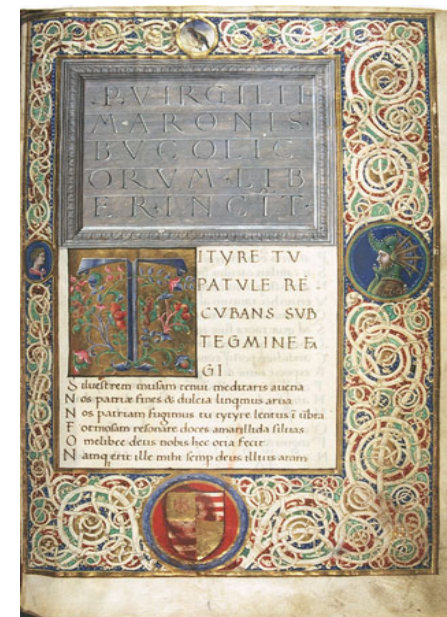 P. VIRGILII
MARONIS
BVCOLIC
ORVM·LIB
ER INCIT·
TITYRE TV
PATVLE RE·
CVBANS SVB
TEGMINE FA
GI
Siluestrem musam tenui meditaris auena
Nos patrię fines & dulcia linqmus arua
Nos patriam fugimus tu tytyre lentus ī ūbra
Formosam resonare doces amarillida siluas
O melibee deus nobis hec ocia fecit
Namq erit ille mihi semp deus illius aram